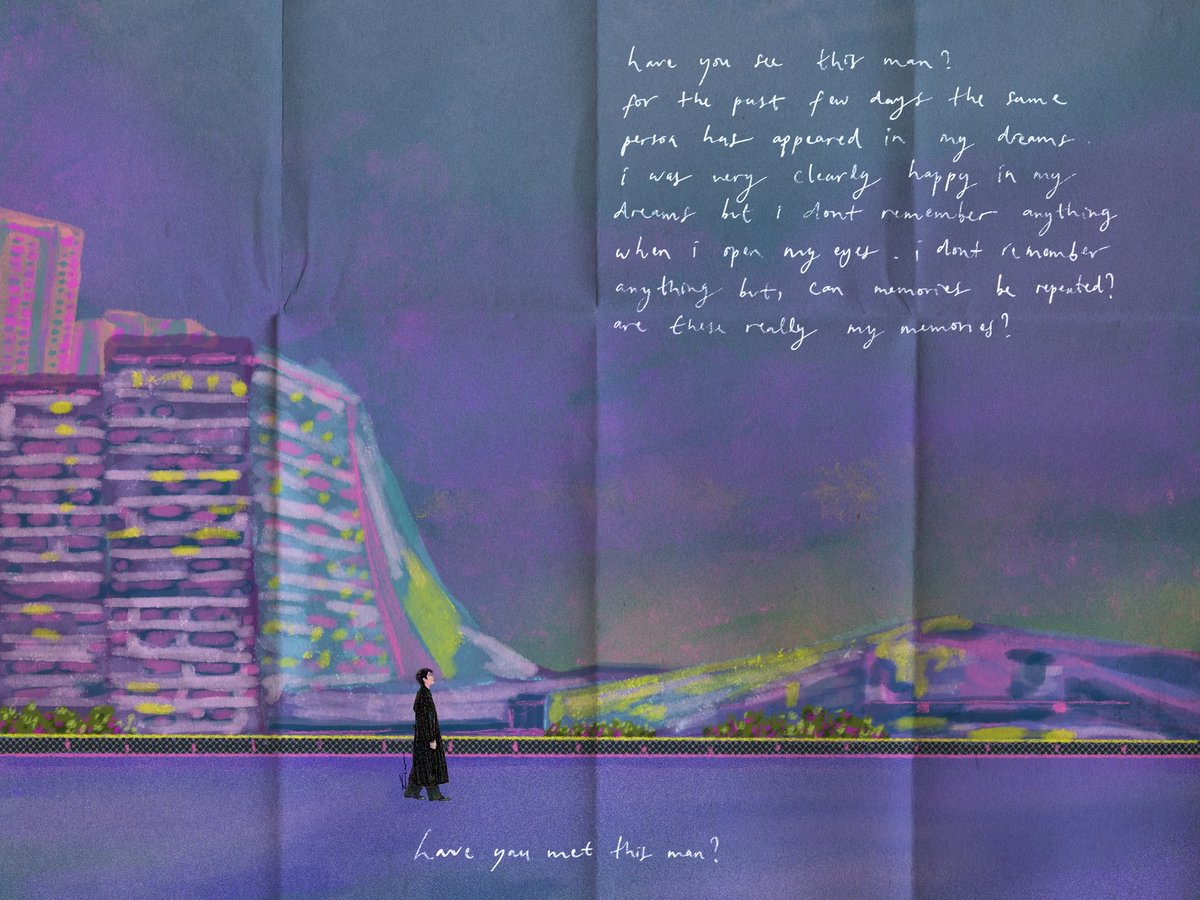 have you see this man?
for the past few days the same
person has appeared in my dreams.
i was very clearly happy in my
dreams but i dont remember anything
when i open my eyes. i dont remember
anything but, can memories be repeated?
are these really my memories?
have you met this man?